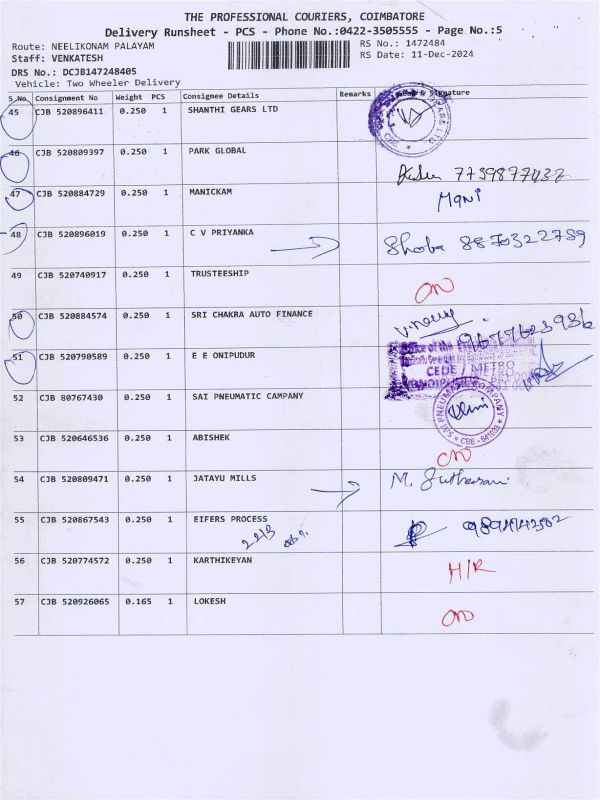 THE PROFESSIONAL COURIERS, COIMBATORE
Delivery Runsheet - PCS - Phone No.:0422-3505555 - Page No.:5
Route: NEELIKONAM PALAYAM
RS No.: 1472484
Staff: VENKATESH
RS Date: 11-Dec-2024
DRS No.: DCJB147248405
Vehicle: Two Wheeler Delivery
S No. Consignment No Weight PCS Consignee Details Remarks & Signature
45 CJB 520896411 0.250 1 SHANTHI GEARS LTD
46 CJB 520809397 0.250 1 PARK GLOBAL
47 CJB 520884729 0.250 1 MANICKAM Mani
48 CJB 520896019 0.250 1 C V PRIYANKA Shoba 8870322789
49 CJB 520740917 0.250 1 TRUSTEESHIP
50 CJB 520884574 0.250 1 SRI CHAKRA AUTO FINANCE
51 CJB 520790589 0.250 1 E E ONIPUDUR
CEDE / METRO
52 CJB 80767430 0.250 1 SAI PNEUMATIC CAMPANY
SAI PNEUMATIC COMPANY
CBE - 641103
53 CJB 520646536 0.250 1 ABISHEK
54 CJB 520809471 0.250 1 JATAYU MILLS
55 CJB 520867543 0.250 1 EIFERS PROCESS
56 CJB 520774572 0.250 1 KARTHIKEYAN H/R
57 CJB 520926065 0.165 1 LOKESH